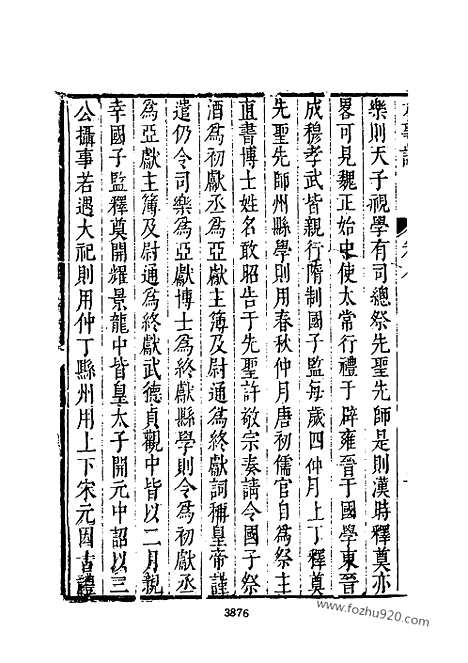 樂則天子視學有司總祭先聖先師是則漢時釋奠亦
畧可見魏正始中使太常行禮于辟雍晉于國學東晉
成穆孝武皆親行隋制國子監每歲四仲月上丁釋奠
先聖先師州縣學則用春秋仲月唐初儒官自爲祭主
直書博士姓名敢昭告于先聖許敬宗奏請令國子祭
酒爲初獻丞爲亞獻主簿及尉通爲終獻詞稱皇帝謹
遣仍令司樂爲亞獻博士爲終獻縣學則令爲初獻丞
爲亞獻主簿及尉通爲終獻武德貞觀中皆以二月親
幸國子監釋奠開耀景龍中皆皇太子開元中詔以三
公攝事若遇大祀則用仲丁縣州用上下宋元因古禮
3876
www.fozhu920.com